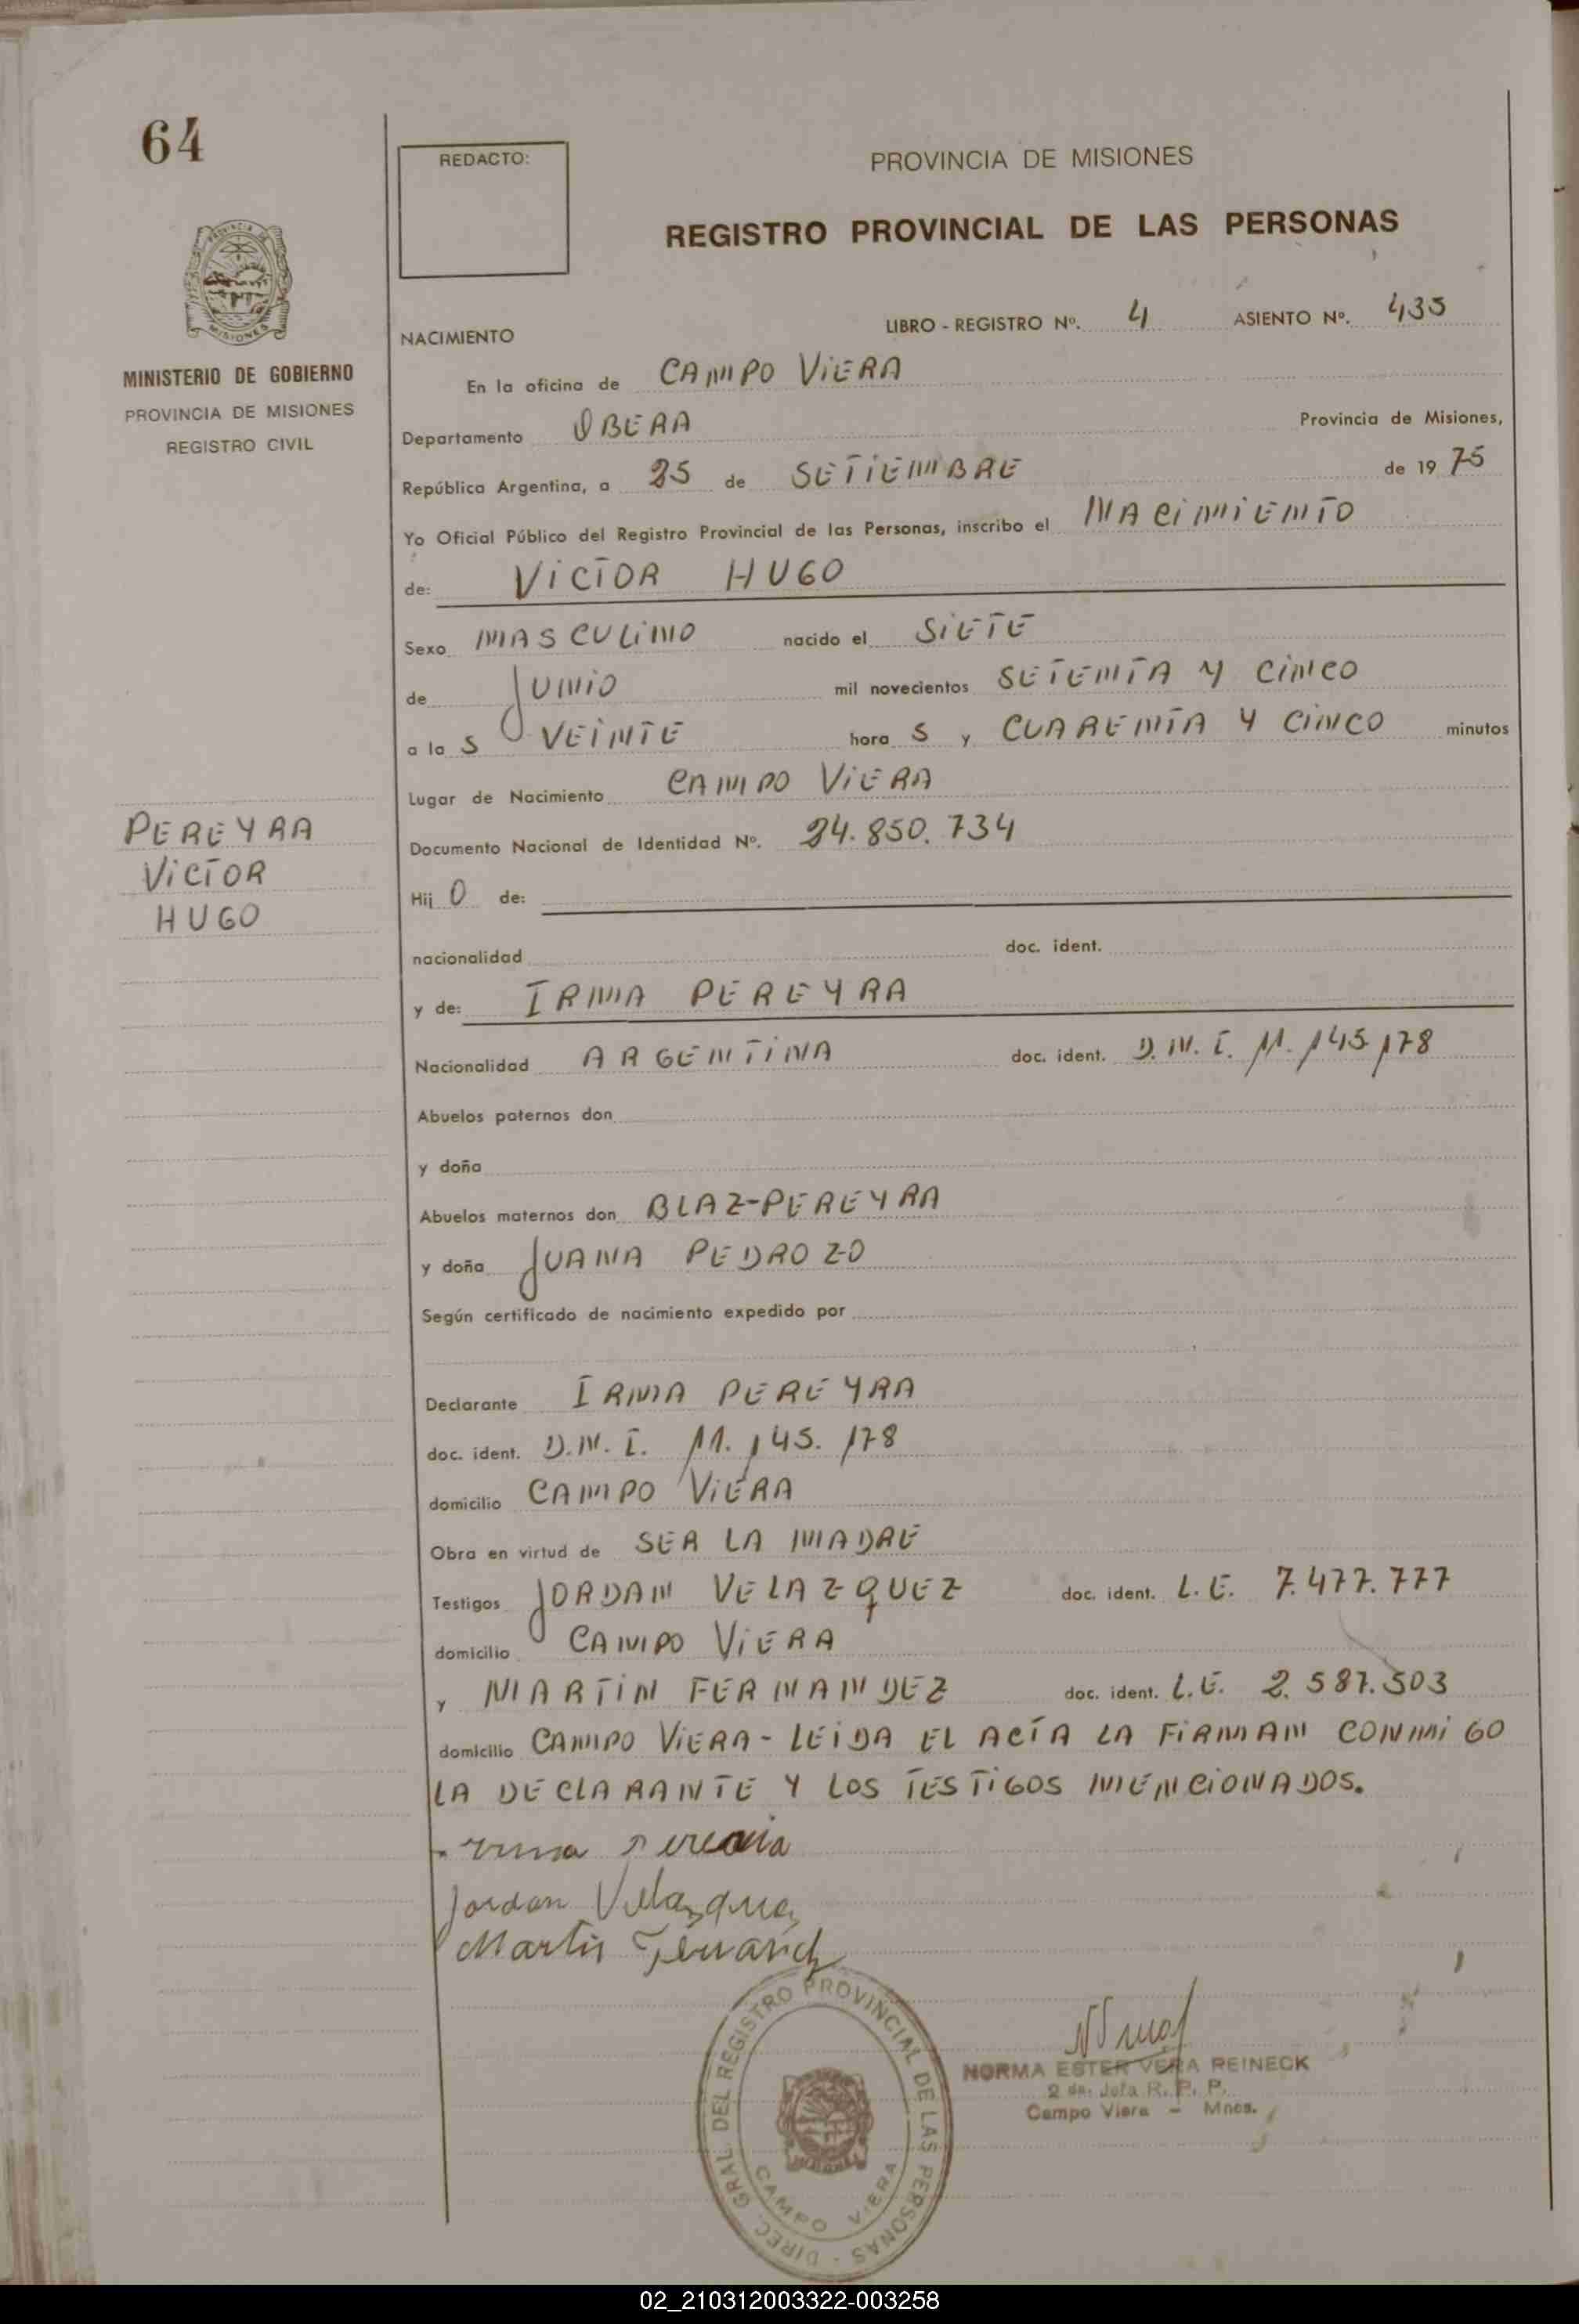 64
REDACTO:
PROVINCIA DE MISIONES
REGISTRO PROVINCIAL DE LAS PERSONAS
PROVINCIA DE MISIONES
MINISTERIO DE GOBIERNO
PROVINCIA DE MISIONES
REGISTRO CIVIL
LIBRO - REGISTRO Nº. 4 ASIENTO Nº. 435
NACIMIENTO
En la oficina de CAMPO ViERA
Departamento OBERA Provincia de Misiones,
República Argentina, a 25 de SETiEMBRE de 19 75
Yo Oficial Público del Registro Provincial de las Personas, inscribo el NACiMiENTO
de: ViCTOR HUGO
Sexo MASCULiNO nacido el SiETE
de JUNiO mil novecientos SETENTA Y CiNCO
a la S VEiNTE hora S y CUARENTA Y CiNCO minutos
Lugar de Nacimiento CAMPO ViERA
Documento Nacional de Identidad Nº. 24.850.734
PEREYRA
ViCTOR
HUGO
Hij O de:
nacionalidad doc. ident.
y de: IRMA PEREYRA
Nacionalidad ARGENTiNA doc. ident. D.N.I. 11.145.178
Abuelos paternos don
y doña
Abuelos maternos don BLAZ-PEREYRA
y doña JUANA PEDROZO
Según certificado de nacimiento expedido por
Declarante IRMA PEREYRA
doc. ident. D.N.I. 11.145.178
domicilio CAMPO ViERA
Obra en virtud de SER LA MADRE
Testigos JORDAN VELAZQUEZ doc. ident. L.E. 7.477.777
domicilio CAMPO ViERA
y MARTiN FERNANDEZ doc. ident. L.E. 2.587.503
domicilio CAMPO ViERA - LEiDA EL ACTA LA FiRMAN CONMiGO
LA DECLARANTE Y LOS TESTiGOS MENCiONADOS.
Jordan Velazquez
Martin
DIREC. GRAL. DEL REGISTRO PROVINCIAL DE LAS PERSONAS -
CAMPO VIERA
NORMA ESTER VERA REINECK
2 da. Jefa R. P. P.
Campo Viera - Mnes.
02_210312003322-003258